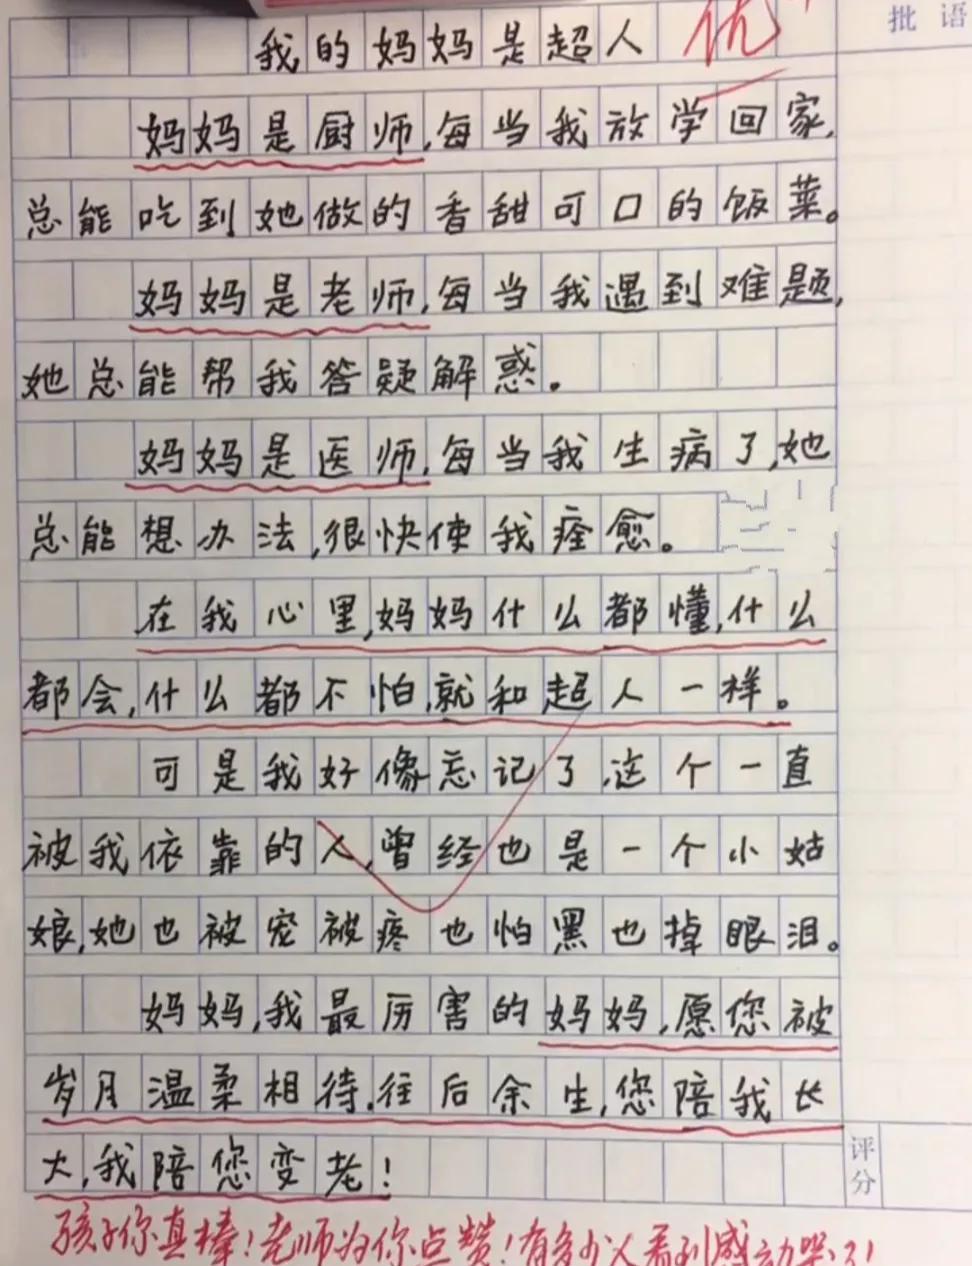 批语
我的妈妈是超人 优+
妈妈是厨师,每当我放学回家,
总能吃到她做的香甜可口的饭菜。
妈妈是老师,每当我遇到难题,
她总能帮我答疑解惑。
妈妈是医师,每当我生病了,她
总能想办法,很快使我痊愈。
在我心里,妈妈什么都懂,什么
都会,什么都不怕,就和超人一样。
可是我好像忘记了,这个一直
被我依靠的人,曾经也是一个小姑
娘,她也被宠被疼也怕黑也掉眼泪。
妈妈,我最厉害的妈妈,愿您被
岁月温柔相待,往后余生,您陪我长
大,我陪您变老!
评分
孩子你真棒!老师为你点赞!有多少人看到感动哭了!